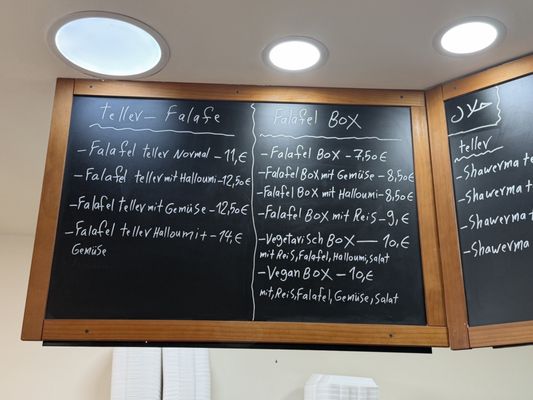 teller – Falafe
– Falafel teller Normal – 11,€
– Falafel teller mit Halloumi – 12,50€
– Falafel teller mit Gemüse – 12,50€
– Falafel teller Halloumi + – 14,€
Gemüse
Falafel BOX
– Falafel BOX – 7,50€
– Falafel BOX mit Gemüse – 8,50€
– Falafel BOX mit Halloumi – 8,50€
– Falafel BOX mit Reis – 9,€
– Vegetarisch BOX – 10,€
mit Reis, Falafel, Halloumi, Salat
– Vegan BOX – 10,€
mit, Reis, Falafel, Gemüse, Salat
حلال
teller
– Shawerma t
– Shawerma t
– Shawerma
– Shawerma